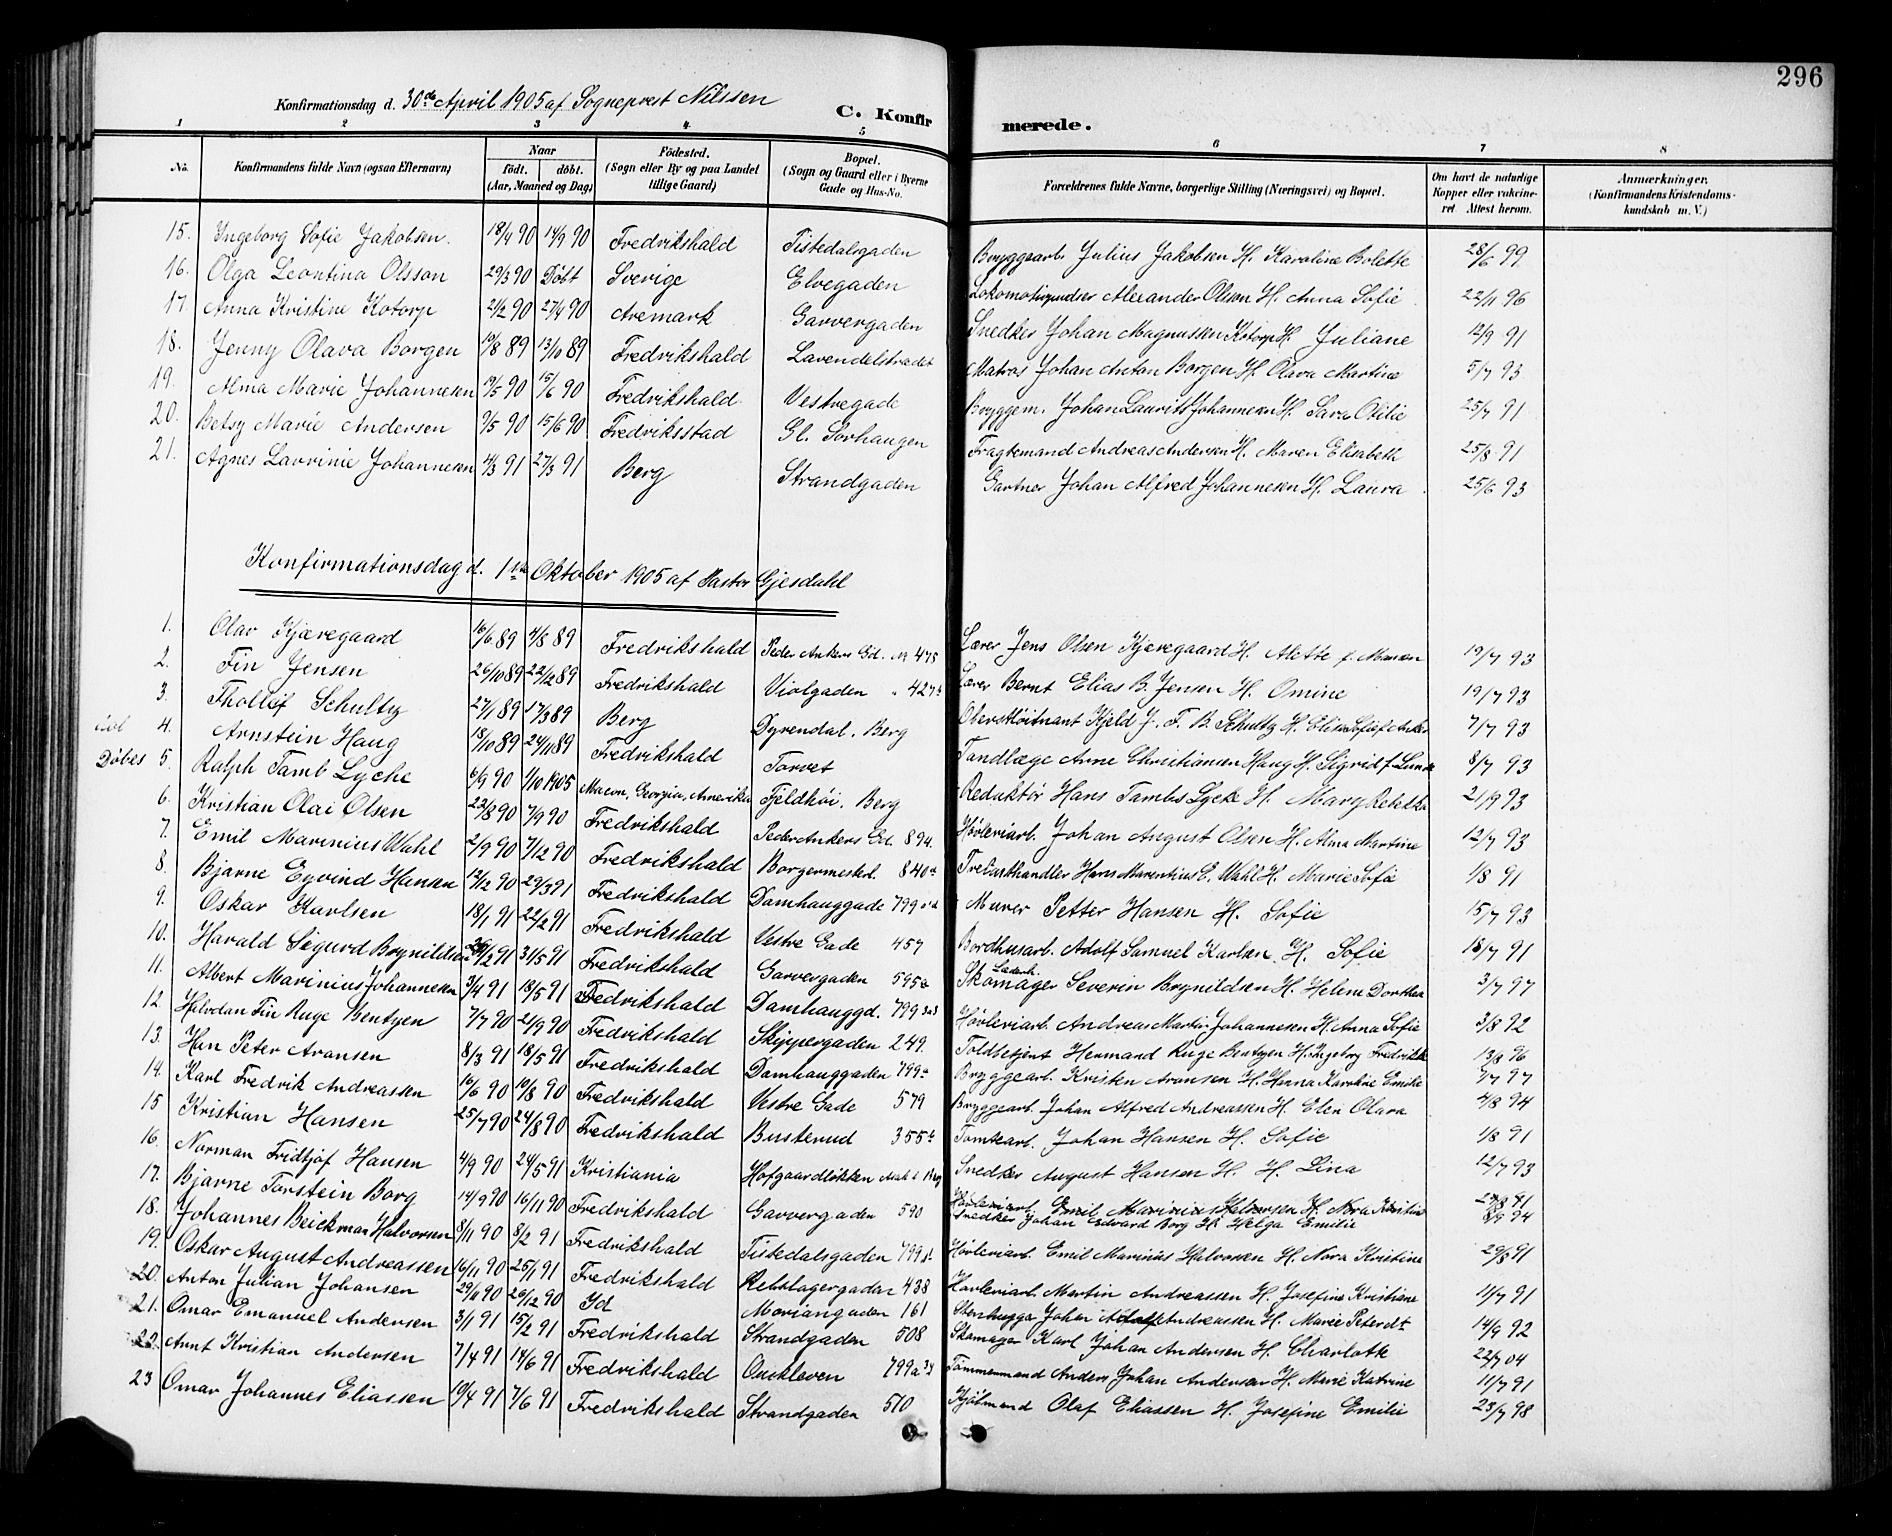 296
Konfirmationsdag d. 30de April 1905 af Sogneprest Nilssen
C. Konfirmerede.
1 2 3 4 5 6 7 8
No. Konfirmandens fulde Navn (ogsaa Efternavn) Naar født. døbt. (Aar, Maaned og Dag) Fødested. (Sogn eller By og paa Landet tillige Gaard) Bopæl. (Sogn og Gaard eller i Byerne Gade og Hus-No. Forældrenes fulde Navne, borgerlige Stilling (Næringsvei) og Bopæl. Om havt de naturlige Kopper eller vakcineret Attest herom. Anmærkninger. (Konfirmandens Kristendomskundskab m. V.)
15. Ingeborg Sofie Jakobsen. 18/4 90 14/9 90 Fredrikshald Tistedalsgaden Bryggearb. Julius Jakobsen H. Karoline Bolette 28/6 99
16. Olga Leontina Olsson 29/3 90 Døbt Sverige Elvegaden Alexander Olsson H. Anna Sofie 22/11 96
17. Anna Kristine Kotorp 21/2 90 27/4 90 Aremark Garvergaden Snedker Johan Magnussen Kotorp H. Juliane 12/9 91
18. Jenny Olava Borgen 19/8 89 13/10 89 Fredrikshald Lavendelstrædet Matros Johan Anton Borgen H. Olava Martine 5/7 93
19. Alma Marie Johannesen 19/5 90 15/6 90 Fredrikshald Vestregade Bryggem. Johan Laurits Johannesen H. Sara Otilie 25/7 91
20. Betsy Marie Andersen 9/5 90 15/6 90 Fredriksstad Gl. Sorhaugen Fragtemand Andreas Andersen H. Maren Elisabeth 25/8 91
21. Agnes Lavrinie Johannesen 4/3 91 27/3 91 Berg Strandgaden Gartner Johan Alfred Johannesen H. Laura 25/6 93
Konfirmationsdag d. 1ste Oktober 1905 af Pastor Gjesdahl
1. Olav Kjæregaard 16/6 89 4/8 89 Fredrikshald Peder Ankers Gd. No 475 Lærer Jens Olsen Kjæregaard H. Alette f. 19/7 93
2. Fin Jensen 26/10 89 22/12 89 Fredrikshald Violgaden " 427 b Lærer Bernt Elias B. Jensen H. Omine 19/7 93
3. Tholléf Schultz 27/1 89 17/3 89 Berg Dyrendal. Berg Oberstløitnant Kjeld J. F. B. Schultz H. Elisa Sofie f. Anker 7/7 93
4. Arnstein Haug 18/10 89 24/11 89 Fredrikshald Torvet Tandlæge Arne Christiansen Haug H. Sigrid f. Lunde 8/7 93
Døbes 5. Ralph Tamb Lyche 6/9 90 1/10 1905 Macon, Georgia, Amerika Fjeldhøi. Berg Redaktør Hans Tambs Lyche H. Mary Rebekka 21/9 93
6. Kristian Olai Olsen 23/8 90 7/9 90 Fredrikshald Peder Ankers Gd. 894. Høvleriarb. Johan August Olsen H. Alma Martine 12/7 93
7. Emil Marinius Wahl 2/9 90 7/12 90 Fredrikshald Borgermesterl. 840 a Trelasthandler Hans Marentius E. Wahl H. Marie Sofie 1/8 91
8. Bjarne Eyvind Hansen 12/12 90 29/3 91 Fredrikshald Damhauggade 799 Murer Petter Hansen H. Sofie 15/7 93
9. Oskar Karlsen 18/1 91 22/2 91 Fredrikshald Vestre Gade 457 Bordhusarb. Adolf Samuel Karlsen H. Sofie 18/7 91
10. Harald Sigurd Brynildsen 26/2 91 31/5 91 Fredrikshald Garvergaden 595 Læderh. Skomager Severin Brynildsen H. Helene Dorthea 3/7 97
11. Albert Marinius Johannesen 3/4 91 18/5 91 Fredrikshald Damhauggd. 799 Høvleriarb. Andreas Martin Johannesen H. Anna Sofie 3/8 92
12. Halvdan Fin Ruge Bentzen 7/7 90 21/9 90 Fredrikshald Skippergaden 249. Toldbetjent Hermand Ruge Bentzen H. Ingeborg Fredrikke 13/8 96
13. Han Peter Aronsen 8/3 91 18/5 91 Fredrikshald Damhauggaden 799 a Bryggearb. Kristen Aronsen H. Hanna Karoline Emilie 5/7 97
14. Karl Fredrik Andreassen 16/6 90 10/8 90 Fredrikshald Vestre Gade 579 Bryggearb. Johan Alfred Andreassen H. Elen Olava 4/8 94
15 Kristian Hansen 25/7 90 24/8 90 Fredrikshald Busterud 355 b Tomtearb. Johan Hansen H. Sofie 1/8 91
16. Norman Fridtjof Hansen 4/9 90 24/5 91 Kristiania Hofgaardløkken Snedker August Hansen H. H. Lina 12/7 93
17. Bjarne Torstein Borg 14/9 90 16/11 90 Fredrikshald Garvergaden 590 Høvleriarb. Emil Marinius Halvorsen H. Nora Kristine
Snedker Johan Edvard Borg H. Helga Emilie
18. Johannes Beickman Halvorsen 8/11 90 8/2 91 Fredrikshald Tistedalsgaden 799 Høvleriarb. Emil Marinius Halvorsen H. Nora Kristine 29/8 91
19. Oskar August Andreassen 16/11 90 25/1 91 Fredrikshald Rebslagergaden 438 Høvleriarb. Martin Andreassen H. Josefine Kristiane 11/7 91
20. Anton Julian Johansen 29/11 90 26/12 90 Id Moriangaden 161 Stenhugger Johan Adolf Andreassen H. Marie 14/9 92
21. Omar Emanuel Andersen 3/1 91 15/2 91 Fredrikshald Strandgaden 508 Skomager Karl Johan Andersen H. Charlotte 22/7 04
22. Arnt Kristian Andersen 7/4 91 14/6 91 Fredrikshald Ouekleven 799 a Tømmermand Anders Johan Andersen H. Marie Katrine 11/7 91
23 Omar Johannes Eliassen 10/4 91 7/6 91 Fredrikshald Strandgaden 510 Kjølmand Olaf Eliassen H. Josefine Emilie 23/7 98